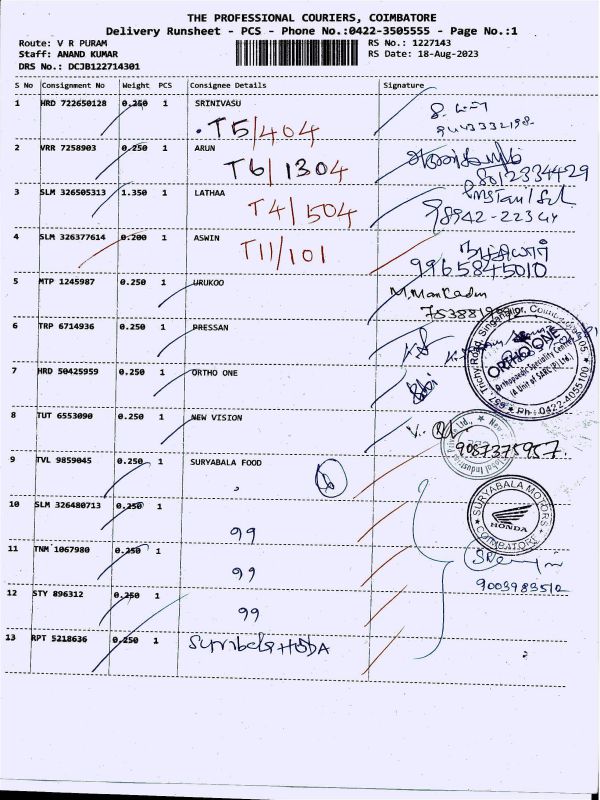 THE PROFESSIONAL COURIERS, COIMBATORE
Delivery Runsheet - PCS - Phone No.:0422-3505555 - Page No.:1
Route: V R PURAM RS No.: 1227143
Staff: ANAND KUMAR RS Date: 18-Aug-2023
DRS No.: DCJB122714301
S No Consignment No Weight PCS Consignee Details Signature
1 HRD 722650128 0.250 1 SRINIVASU
T5/404
2 VRR 7258903 0.250 1 ARUN
T6/1304
8012334429
3 SLM 326505313 1.350 1 LATHAA
T4/504
4 SLM 326377614 0.200 1 ASWIN
T11/101
9965845010
5 MTP 1245987 0.250 1 URUKOO
6 TRP 6714936 0.250 1 PRESSAN
7 HRD 50425959 0.250 1 ORTHO ONE
ORTHO ONE
Orthopaedic Speciality Centre
(A Unit of SARC (P) Ltd.)
Ph : 0422-4055100
8 TUT 6553090 0.250 1 NEW VISION
9087375957.
9 TVL 9859045 0.250 1 SURYABALA FOOD
10 SLM 326480713 0.250 1
99
SURYABALA MOTORS
HONDA
COIMBATORE
11 TNM 1067980 0.250 1
99
9003983512
12 STY 896312 0.250 1
99
13 RPT 5218636 0.250 1